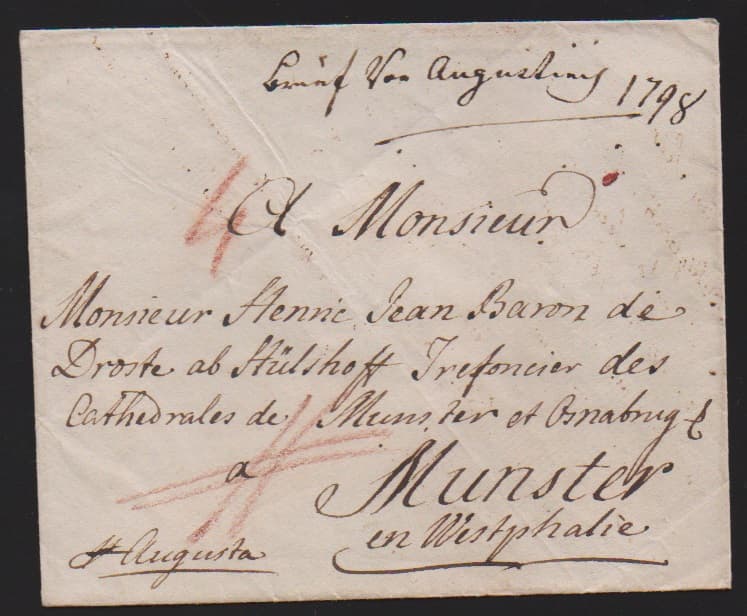 brief von Augustin
1798
4
A Monsieur
Monsieur Henric Jean Baron de
Droste ab Hülshoff Trefoncier des
Cathedrales de Munster et Osnabrug
a Munster
en Westphalie
Augusta